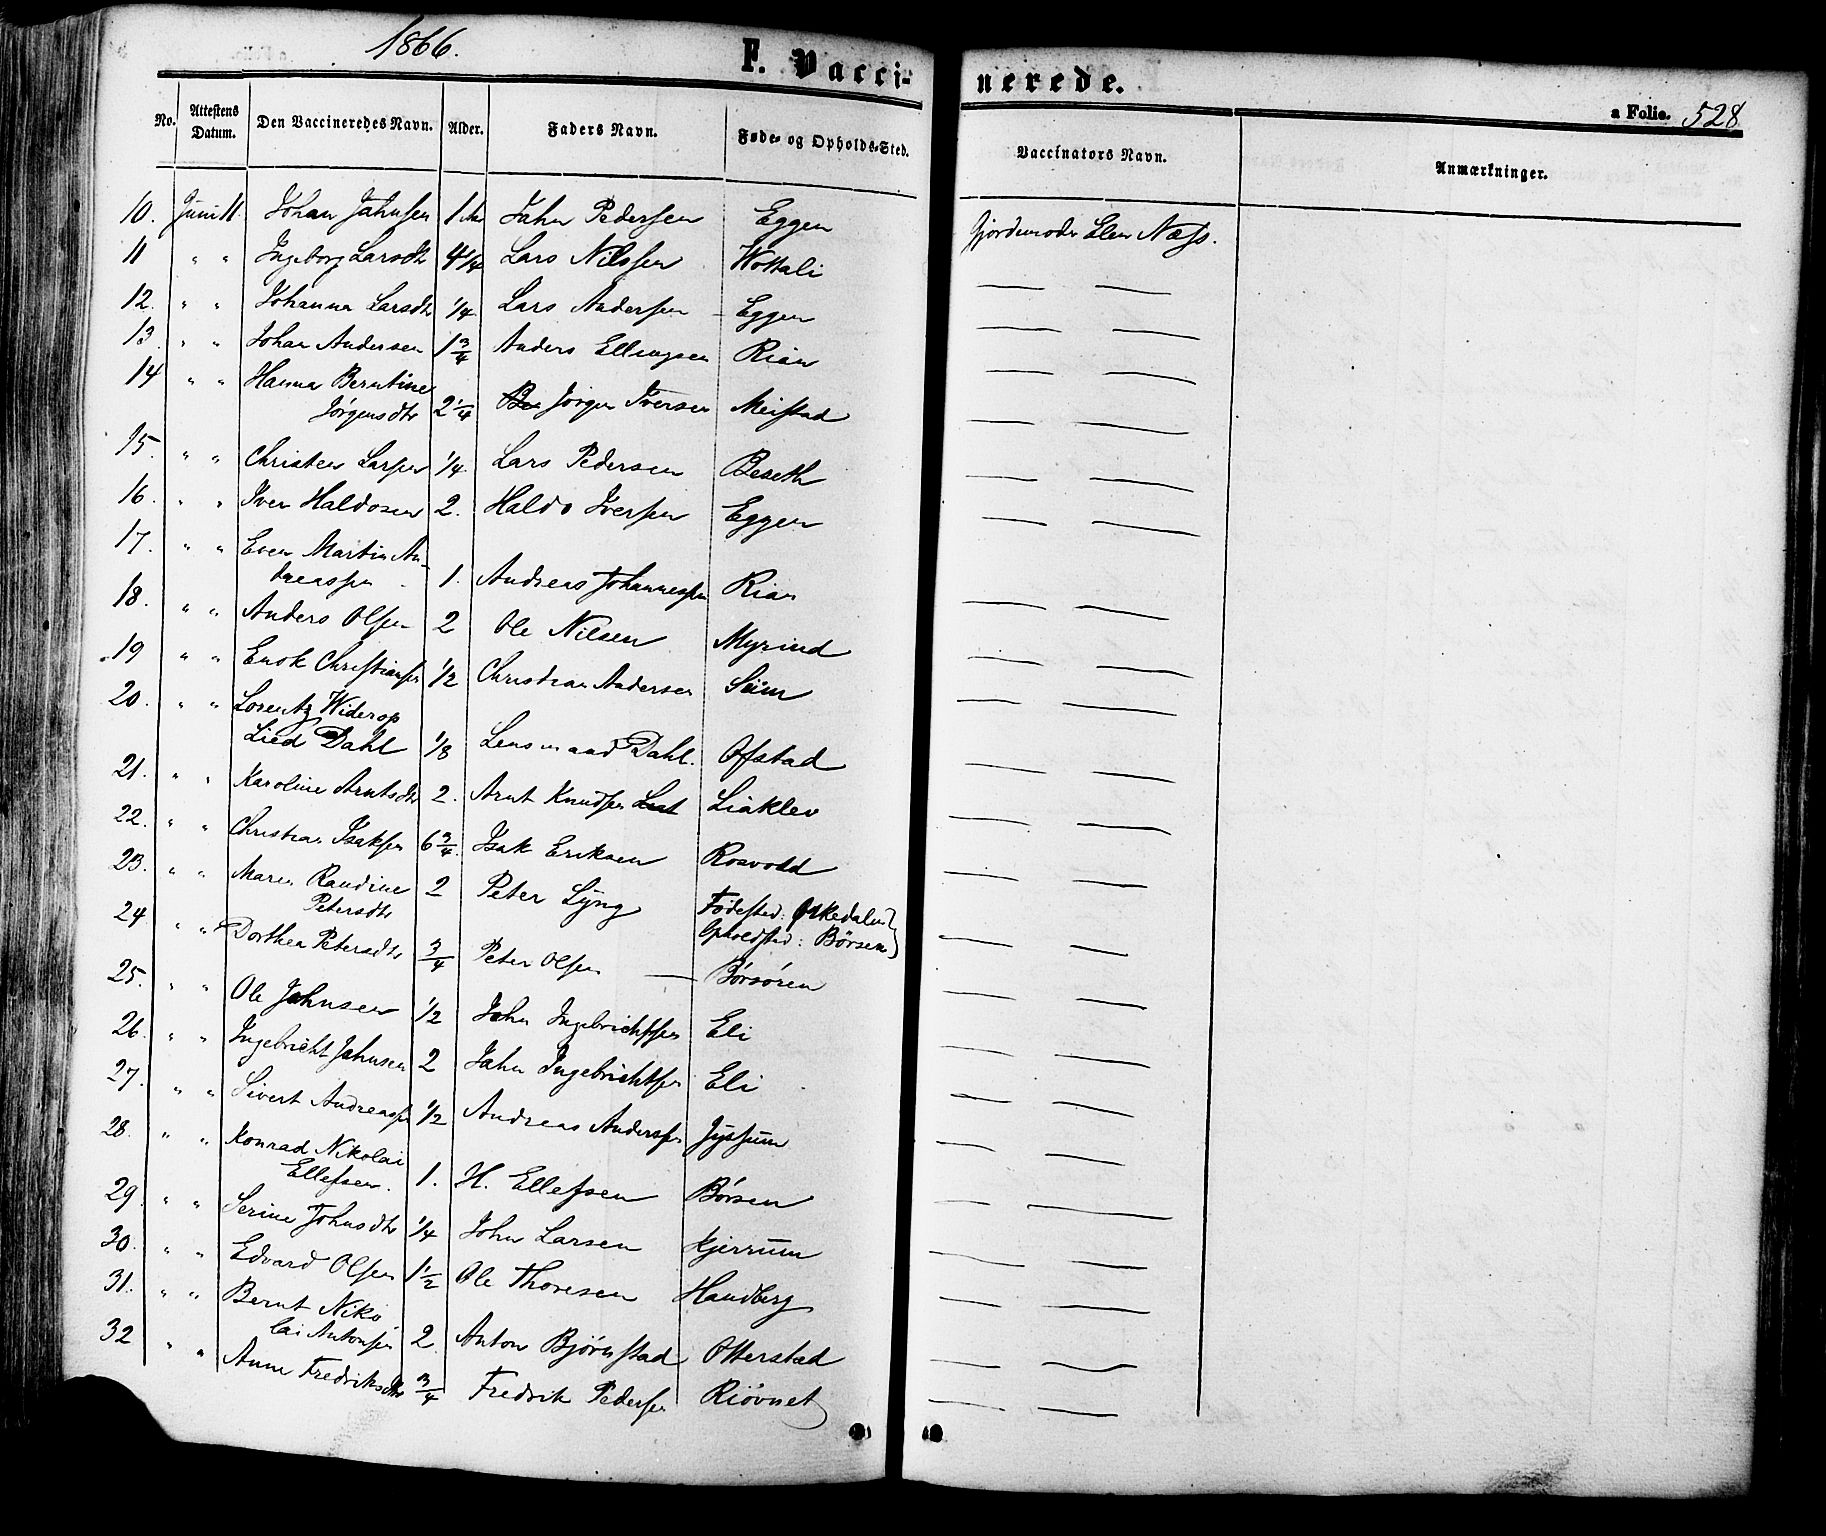 1866.
F. Vacci-
nerede.
a Folio. 528
No. Attestens Datum. Den Vaccineredes Navn. Alder. Faders Navn. Føde- og Opholds-Sted. Vaccinators Navn. Anmærkninger.
10. Juni 11. Johan Jahnsen 1 Jahn Pedersen Eggen Gjordemoder Elen Næss.
11 " " Ingeborg Larsdtr 4 1/4 Lars Nilssen Wottali — —
12. " " Johanna Larsdtr 1/4 Lars Andersen – Eggen — —
13. " " Johan Andersen 1 3/4 Anders Ellingsen Rian — —
14 " " Hanna Berntine
Jørgensdtr 2 1/4 Jørgen Iversen Meistad — —
15. " " Christen Larsen 1/4. Lars Pedersen Beseth — —
16. " " Iver Haldosen 2. Haldo Iversen Eggen — —
17. " " Even Martin An-
dreassen 1. Andreas Johannessen Rian — —
18. " " Anders Olsen 2 Ole Nilsen Myrind — —
19 " " Enok Christiansen 1/2 Christian Andersen Süm — —
20. " " Lorentz Widerop
Lied Dahl 1/8 Lensmand Dahl. Ofstad — —
21. " " Karoline Arntsdtr 2. Arnt Knudsen Liaklev — —
22. " " Christian Isaksen 6 3/4. Isak Eriksen Rosvodd — —
23. " " Maren Randine
Petersdtr 2 Peter Lyng Fødested: Orkedalen
Opholdsted: Børsen — —
24 " " Dorthea Petersdtr 3/4 Peter Olsen — Børsøren — —
25. " " Ole Jahnsen 1/2 John Ingebrichtsen Eli — —
26. " " Ingebricht Jahnsen 2 Jahn Ingebrichtsen Eli — —
27. " " Sivert Andreassen 1/2 Andreas Anderssen Jyssum — —
28. " " Konrad Nikolai
Ellefsen. 1. H. Ellefsen Børsen — —
29. " " Serine Johnsdtr 1/4 John Larsen Kjerrum — —
30. " " Edvard Olsen 1 1/2 Ole Thoresen Handberg — —
31. " " Bernt Niko
lai Antonsen 2. Anton Bjørnstad Otterstad — —
32 " " Anne Fredriksdtr 3/4 Fredrik Pedersen Riövnet — —